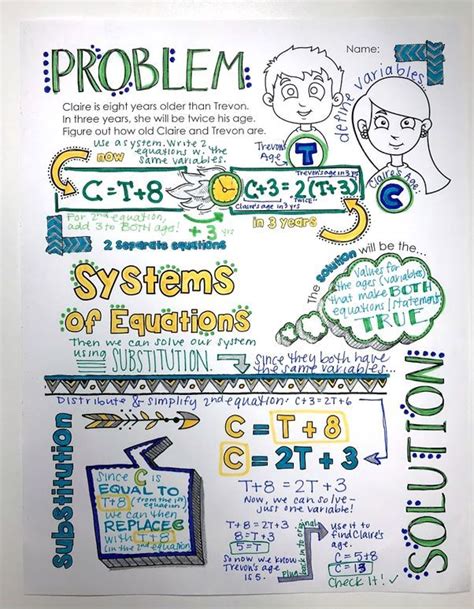 PROBLEM
Name:
Claire is eight years older than Trevon.
In three years, she will be twice his age.
Figure out how old Claire and Trevon are.
define variables
Use a system. Write 2
equations w. the
same variables.
now
Trevon's
Age
T
Claire's Age
C
C=T+8
Trevon's age in 3 yrs
C+3=2(T+3)
twice
Claire's age in 3 yrs
For 2nd equation,
add 3 to BOTH age!
+3
yrs
in 3 years
2 Separate equations
The solution will be the...
values for
the ages (variables)
that make BOTH
equations/statements
TRUE
Systems
of Equations
Then we can solve our system
using SUBSTITUTION.
Since they both have
the same variables...
Distribute & simplify 2nd equation: C+3=2T+6
SOLUTION
Substitution
C = T+8
C = 2T+3
Since C is
EQUAL TO
T+8 (from the 1st)
we can then
REPLACE C
with T+8
(in the 2nd equation)
T+8 = 2T+3
Now, we can solve-
just one variable!
T+8 = 2T+3
8=T+3
5=T
So now we know
Trevon's age
is 5.
Plug back into original
Use it to
find Claire's
age.
C = 5+8
C = 13
Check It! ✓